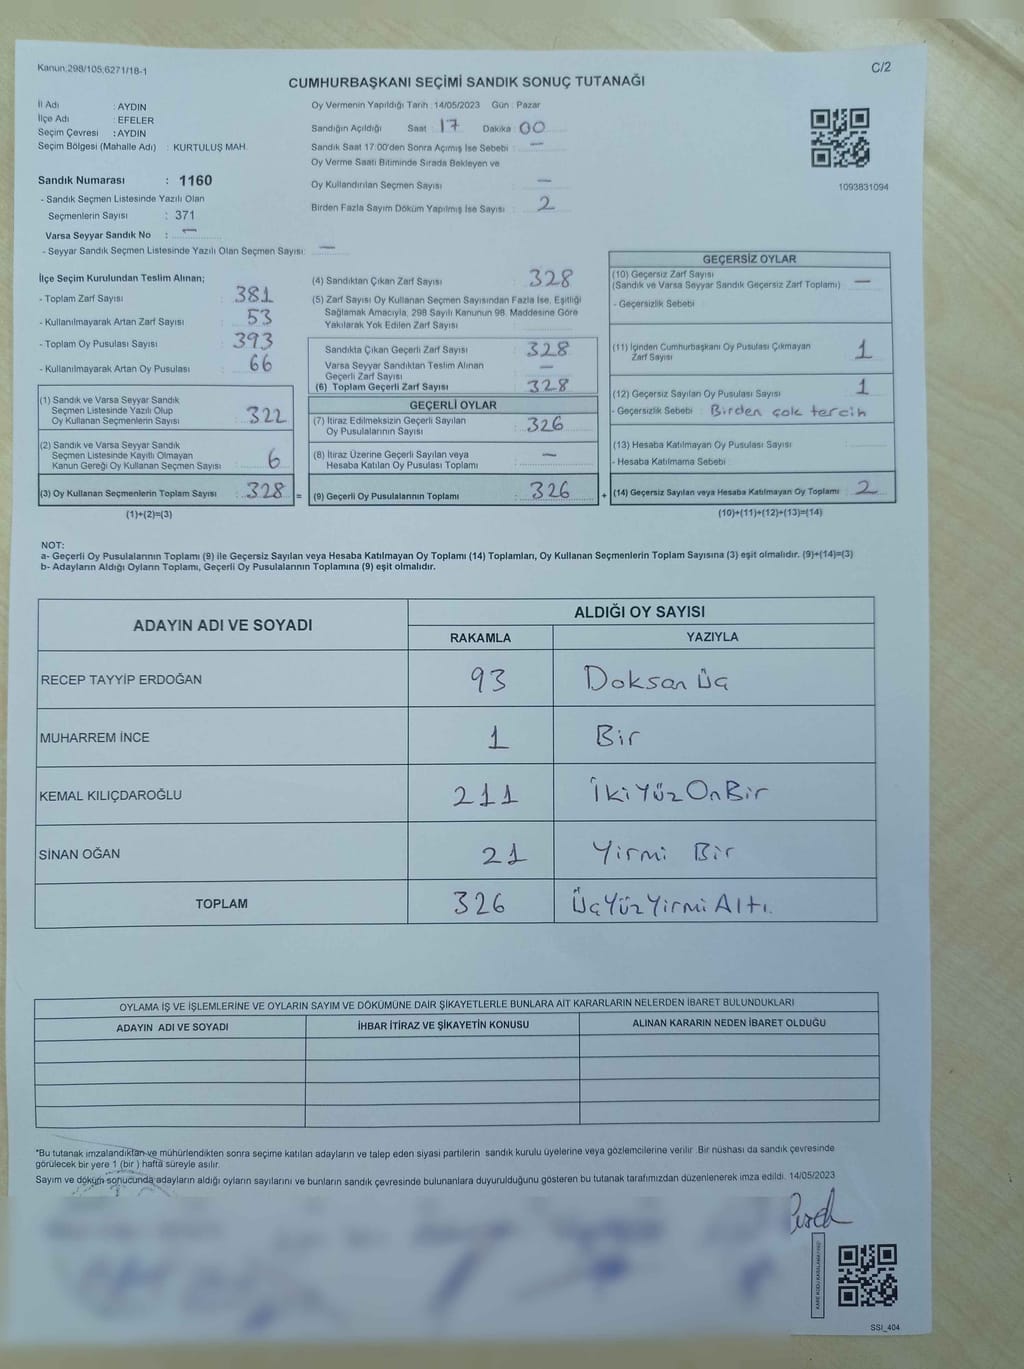 Kanun:298/105;6271/18-1
C/2
CUMHURBAŞKANI SEÇİMİ SANDIK SONUÇ TUTANAĞI
İl Adı : AYDIN
İlçe Adı : EFELER
Seçim Çevresi : AYDIN
Seçim Bölgesi (Mahalle Adı) : KURTULUŞ MAH.
Sandık Numarası : 1160
- Sandık Seçmen Listesinde Yazılı Olan
Seçmenlerin Sayısı : 371
Varsa Seyyar Sandık No : —
- Seyyar Sandık Seçmen Listesinde Yazılı Olan Seçmen Sayısı: —
Oy Vermenin Yapıldığı Tarih : 14/05/2023 Gün : Pazar
Sandığın Açıldığı Saat : 17 Dakika : 00
Sandık Saat 17:00'den Sonra Açımış İse Sebebi : —
Oy Verme Saati Bitiminde Sırada Bekleyen ve
Oy Kullandırılan Seçmen Sayısı : —
Birden Fazla Sayım Döküm Yapılmış İse Sayısı : 2
1093831094
İlçe Seçim Kurulundan Teslim Alınan;
- Toplam Zarf Sayısı : 381
- Kullanılmayarak Artan Zarf Sayısı : 53
- Toplam Oy Pusulası Sayısı : 393
- Kullanılmayarak Artan Oy Pusulası : 66
(1) Sandık ve Varsa Seyyar Sandık
Seçmen Listesinde Yazılı Olup
Oy Kullanan Seçmenlerin Sayısı : 322
(2) Sandık ve Varsa Seyyar Sandık
Seçmen Listesinde Kayıtlı Olmayan
Kanun Gereği Oy Kullanan Seçmen Sayısı : 6
(3) Oy Kullanan Seçmenlerin Toplam Sayısı : 328 =
(1)+(2)=(3)
(4) Sandıktan Çıkan Zarf Sayısı : 328
(5) Zarf Sayısı Oy Kullanan Seçmen Sayısından Fazla İse, Eşitliği
Sağlamak Amacıyla, 298 Sayılı Kanunun 98. Maddesine Göre
Yakılarak Yok Edilen Zarf Sayısı :
Sandıkta Çıkan Geçerli Zarf Sayısı : 328
Varsa Seyyar Sandıktan Teslim Alınan
Geçerli Zarf Sayısı : —
(6) Toplam Geçerli Zarf Sayısı : 328
GEÇERLİ OYLAR
(7) İtiraz Edilmeksizin Geçerli Sayılan
Oy Pusulalarının Sayısı : 326
(8) İtiraz Üzerine Geçerli Sayılan veya
Hesaba Katılan Oy Pusulası Toplamı : —
(9) Geçerli Oy Pusulalarının Toplamı : 326 +
GEÇERSİZ OYLAR
(10) Geçersiz Zarf Sayısı
(Sandık ve Varsa Seyyar Sandık Geçersiz Zarf Toplamı) : —
- Geçersizlik Sebebi :
(11) İçinden Cumhurbaşkanı Oy Pusulası Çıkmayan
Zarf Sayısı : 1
(12) Geçersiz Sayılan Oy Pusulası Sayısı : 1
- Geçersizlik Sebebi : Birden çok tercih
(13) Hesaba Katılmayan Oy Pusulası Sayısı :
- Hesaba Katılmama Sebebi :
(14) Geçersiz Sayılan veya Hesaba Katılmayan Oy Toplamı : 2
(10)+(11)+(12)+(13)=(14)
NOT:
a- Geçerli Oy Pusulalarının Toplamı (9) ile Geçersiz Sayılan veya Hesaba Katılmayan Oy Toplamı (14) Toplamları, Oy Kullanan Seçmenlerin Toplam Sayısına (3) eşit olmalıdır. (9)+(14)=(3)
b- Adayların Aldığı Oyların Toplamı, Geçerli Oy Pusulalarının Toplamına (9) eşit olmalıdır.
ADAYIN ADI VE SOYADI
ALDIĞI OY SAYISI
RAKAMLA YAZIYLA
RECEP TAYYİP ERDOĞAN 93 Doksan Üç
MUHARREM İNCE 1 Bir
KEMAL KILIÇDAROĞLU 211 İkiYüzOnBir
SİNAN OĞAN 21 Yirmi Bir
TOPLAM 326 ÜçYüzYirmiAltı.
OYLAMA İŞ VE İŞLEMLERİNE VE OYLARIN SAYIM VE DÖKÜMÜNE DAİR ŞİKAYETLERLE BUNLARA AİT KARARLARIN NELERDEN İBARET BULUNDUKLARI
ADAYIN ADI VE SOYADI İHBAR İTİRAZ VE ŞİKAYETİN KONUSU ALINAN KARARIN NEDEN İBARET OLDUĞU
*Bu tutanak imzalandıktan ve mühürlendikten sonra seçime katılan adayların ve talep eden siyasi partilerin sandık kurulu üyelerine veya gözlemcilerine verilir. Bir nüshası da sandık çevresinde
görülecek bir yere 1 (bir) hafta süreyle asılır.
Sayım ve döküm sonucunda adayların aldığı oyların sayılarını ve bunların sandık çevresinde bulunanlara duyurulduğunu gösteren bu tutanak tarafımızdan düzenlenerek imza edildi. 14/05/2023
SSI_404